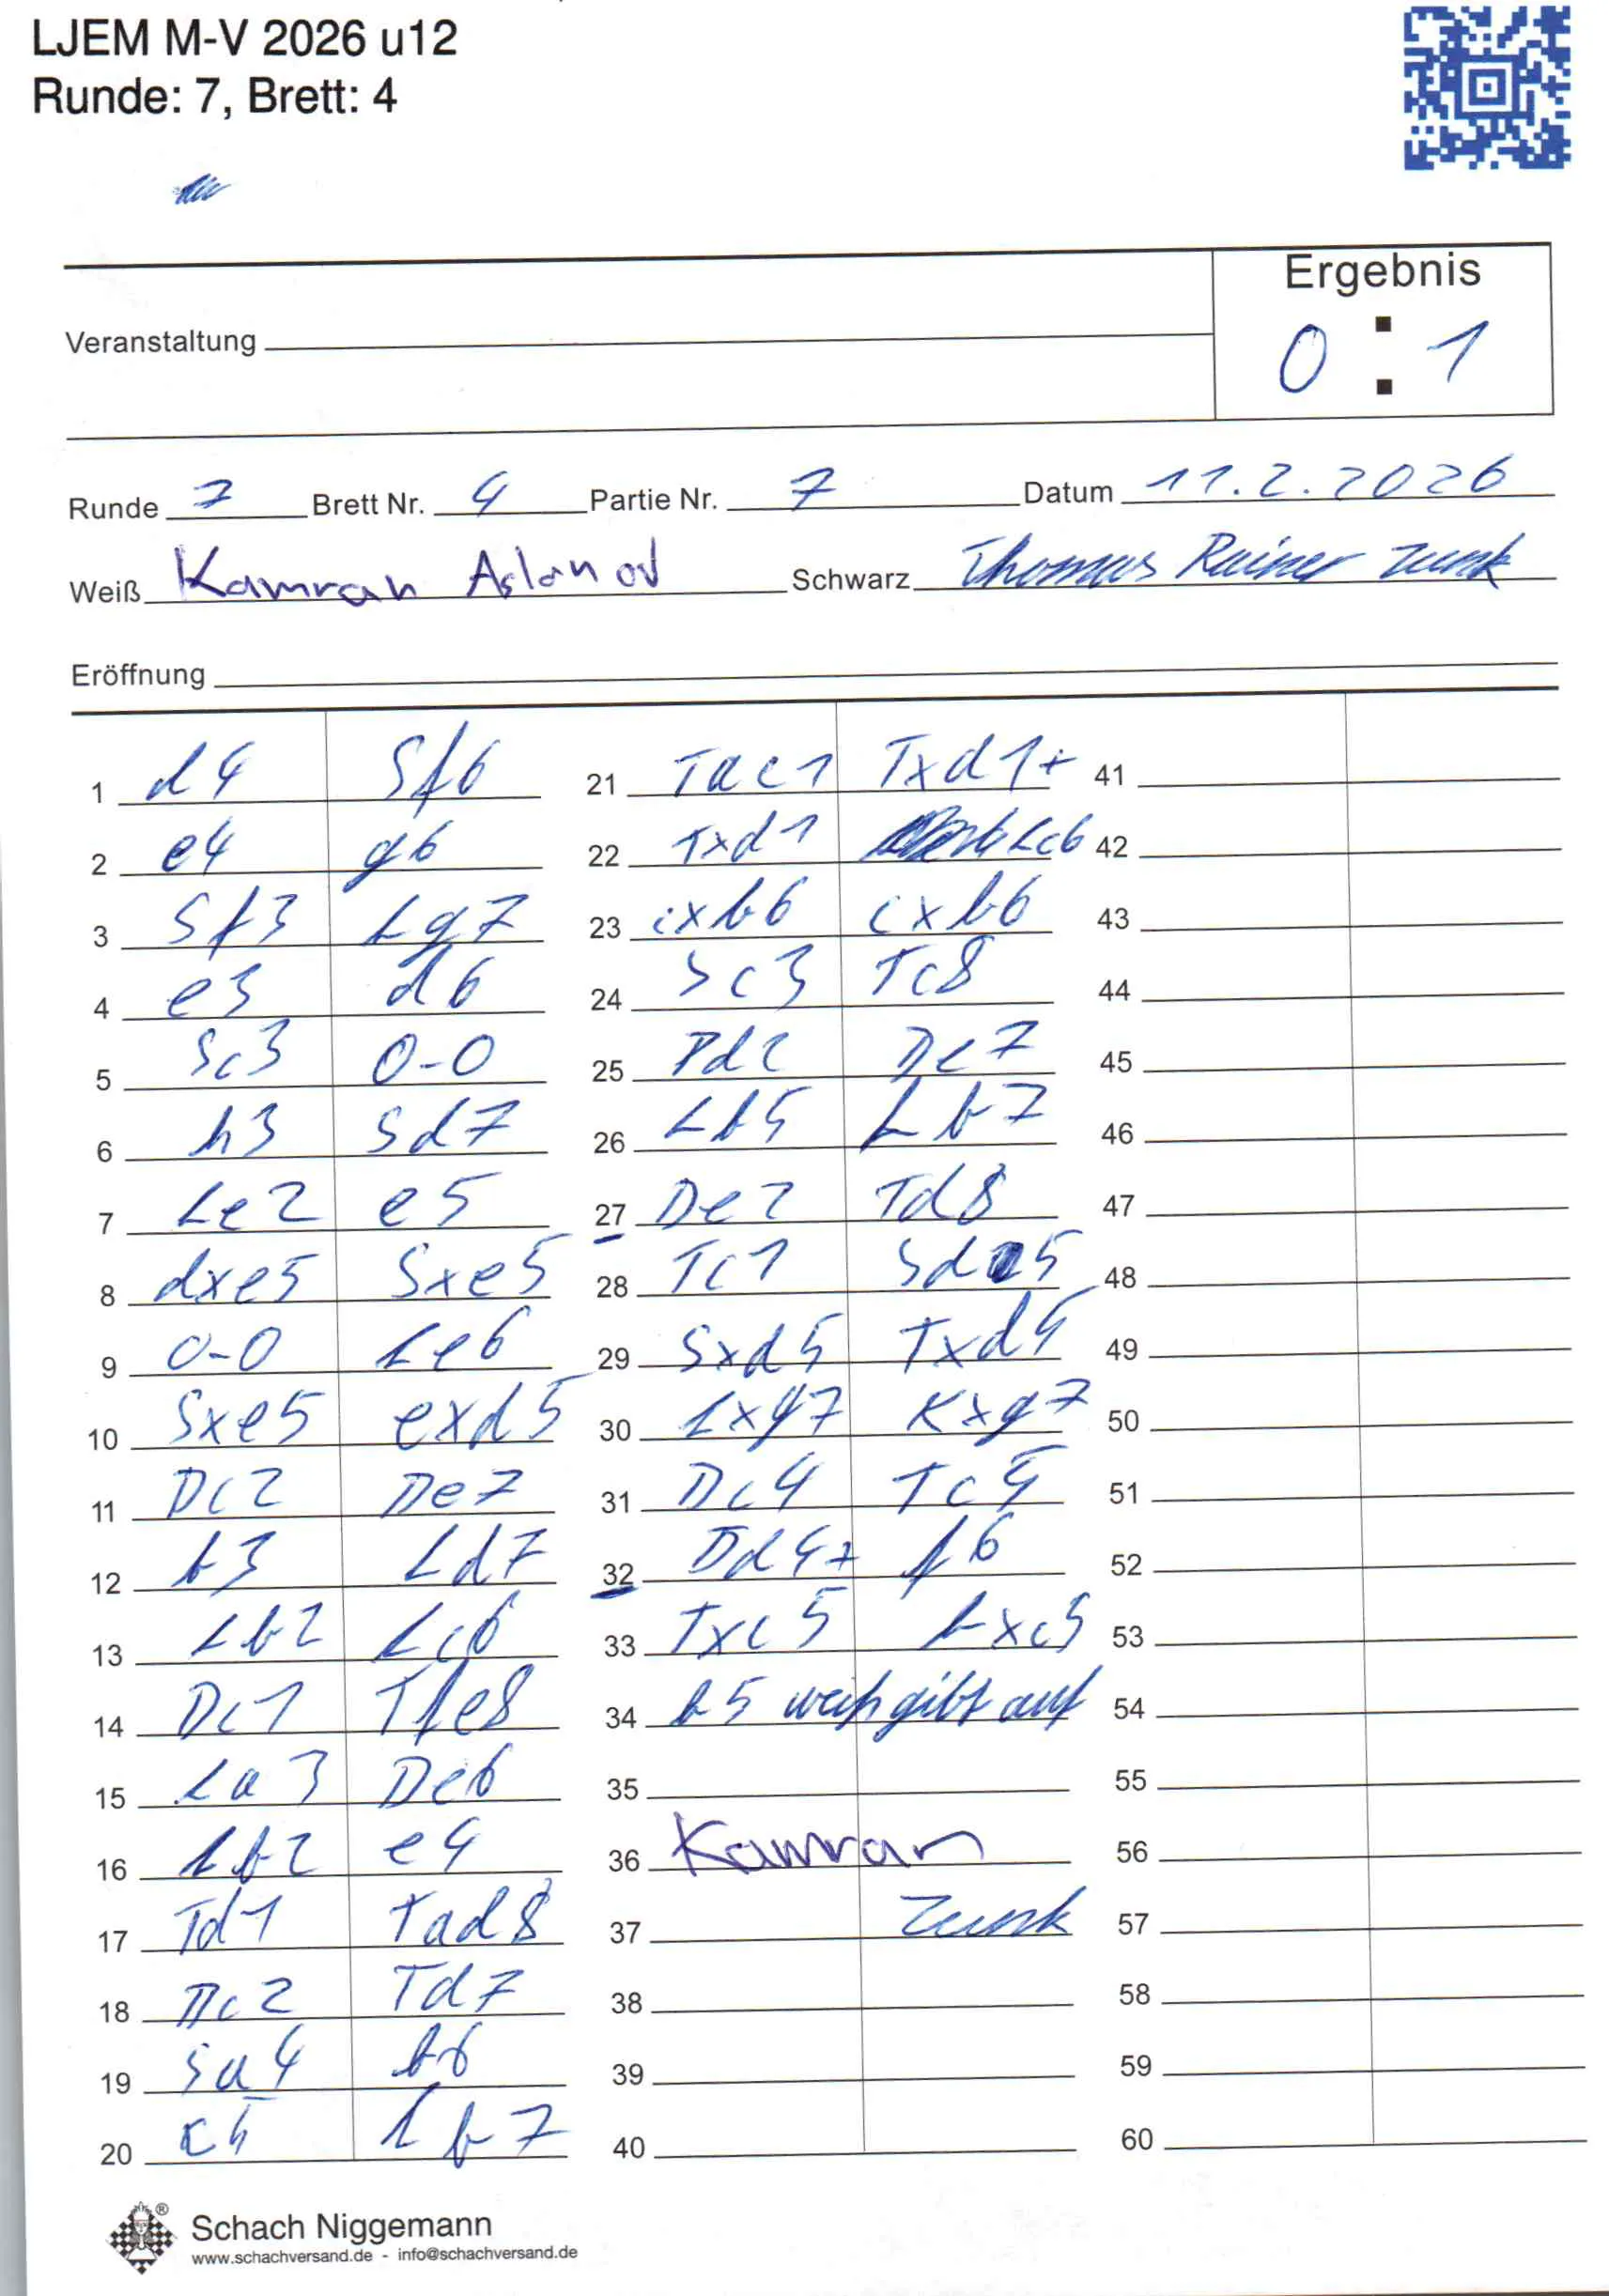 LJEM M-V 2026 u12
Runde: 7, Brett: 4
Ergebnis
0 : 1
Veranstaltung
Runde 7 Brett Nr. 4 Partie Nr. 7 Datum 11.2.2026
Weiß Kamran Aslanov Schwarz Thomas Rainer Zunk
Eröffnung
1 d4 Sf6
2 e4 g6
3 Sf3 Lg7
4 e3 d6
5 Sc3 0-0
6 h3 Sd7
7 Le2 e5
8 dxe5 Sxe5
9 0-0 Le6
10 Sxe5 exd5
11 Dc2 De7
12 b3 Ld7
13 Lb2 Lc6
14 Dc1 Tfe8
15 La3 De6
16 Lb2 e4
17 Td1 Tad8
18 Dc2 Td7
19 Sa4 b6
20 c5 Lb7
21 Tac1 Txd1+
22 Txd1 Lc6
23 cxb6 cxb6
24 Sc3 Tc8
25 Td2 De7
26 Lb5 Lb7
27 De2 Td8
28 Tc1 Sd5
29 Sxd5 Txd5
30 Lxg7 Kxg7
31 Dc4 Tc5
32 Dd4+ f6
33 Txc5 bxc5
34 b5 weiß gibt auf
35
36 Kamran
37 Zunk
38
39
40
41
42
43
44
45
46
47
48
49
50
51
52
53
54
55
56
57
58
59
60
Schach Niggemann
www.schachversand.de - info@schachversand.de